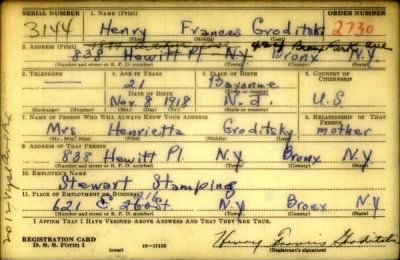 SERIAL NUMBER 1. NAME (Print) ORDER NUMBER
3144 Henry Frances Groditski 2730
(First) (Middle) (Last)
2. ADDRESS (Print) 424 Bronx Park Ave
838 Hewitt Pl. N.Y. Bronx N.Y.
(Number and street or R. F. D. number) (Town) (County) (State)
3. TELEPHONE 4. AGE IN YEARS 5. PLACE OF BIRTH 6. COUNTRY OF CITIZENSHIP
21 Bayonne
DATE OF BIRTH (Town or county)
Nov. 8 1918 N.J. U.S.
(Exchange) (Number) (Mo.) (Day) (Yr.) (State or country)
7. NAME OF PERSON WHO WILL ALWAYS KNOW YOUR ADDRESS 8. RELATIONSHIP OF THAT PERSON
Mrs Henrietta Groditsky mother
(Mr., Mrs., Miss) (First) (Middle) (Last)
9. ADDRESS OF THAT PERSON
838 Hewitt Pl. N.Y. Bronx N.Y.
(Number and street or R. F. D. number) (Town) (County) (State)
10. EMPLOYER'S NAME
Stewart Stamping
11. PLACE OF EMPLOYMENT OR BUSINESS
621 E 216 St. N.Y. Bronx N.Y.
(Number and street or R. F. D. number) (Town) (County) (State)
I AFFIRM THAT I HAVE VERIFIED ABOVE ANSWERS AND THAT THEY ARE TRUE.
REGISTRATION CARD
D. S. S. Form 1 (over) 16—17105 Henry Francis Groditski
(Registrant's signature)